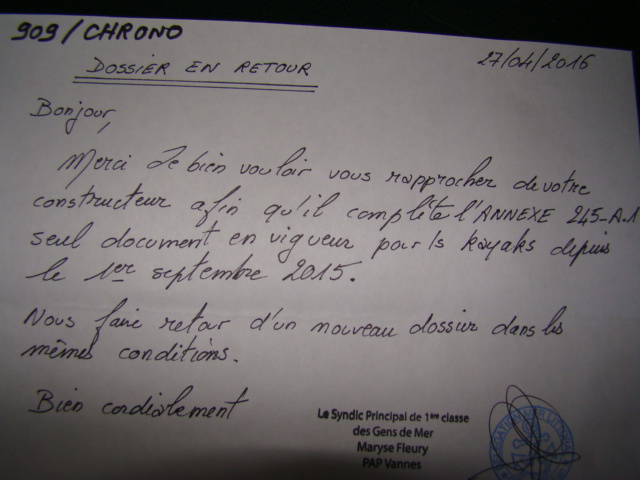 909/CHRONO
27/04/2016
DOSSIER EN RETOUR
Bonjour,
Merci de bien vouloir vous rapprocher de votre
constructeur afin qu'il complète l'ANNEXE 245-A.1
seul document en vigueur pour ls kayaks depuis
le 1er septembre 2015.
Nous faire retour d'un nouveau dossier dans les
mêmes conditions.
Bien cordialement
Le Syndic Principal de 1ère classe
des Gens de Mer
Maryse Fleury
PAP Vannes